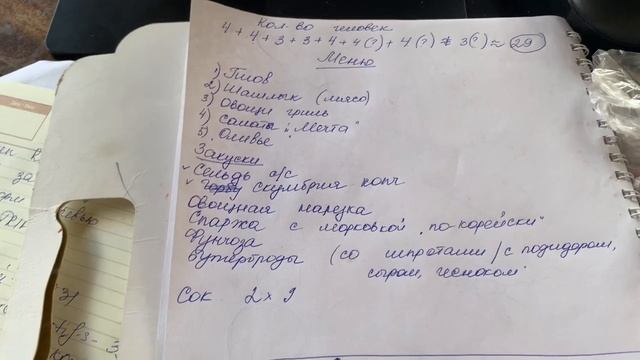 Кол-во человек
4 + 4 + 3 + 3 + 4 + 4(?) + 4(?) 3(?) ≈ 29
Меню
1) Плов
2) Шашлык (мясо)
3) Овощи гриль
4) Салаты "Мечта"
5) "Оливье"
Закуски
Сельдь с/с
скумбрия копч
овощная нарезка
Спаржа с морковкой "по-корейски"
Фунчоза
Бутерброды (со шпротами / с помидором,
сыром, чесноком
Сок 2 x 9
за